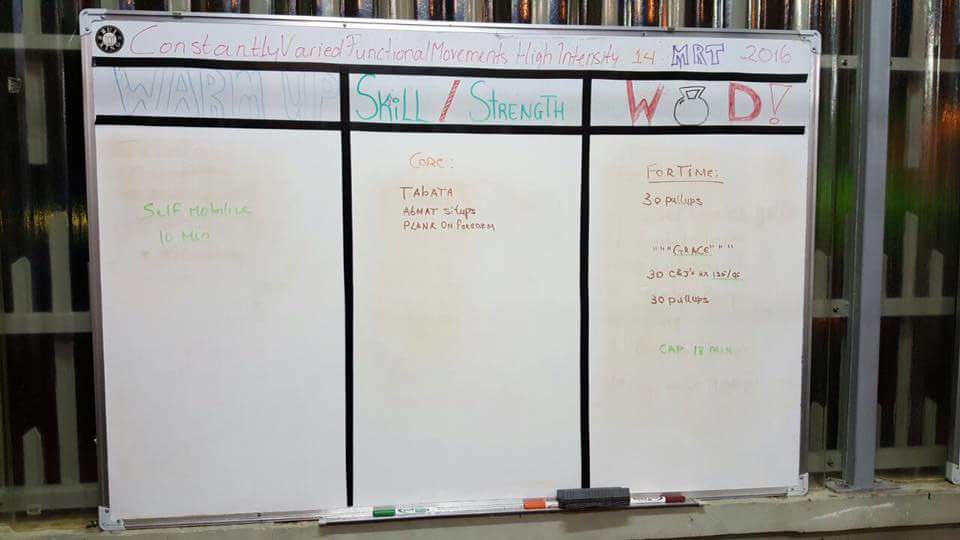 Constantly Varied Functional Movements High Intensity 14 MRT 2016
WARM UP
Self Mobilize
10 Min
Skill / Strength
Core:
TAbATA
AbMAT situps
PLANK ON foreorm
W D!
FOR TIME:
30 pullups
""" GRACE" " "
30 C&J's RX 135/95
30 pullups
CAP 18 MIN